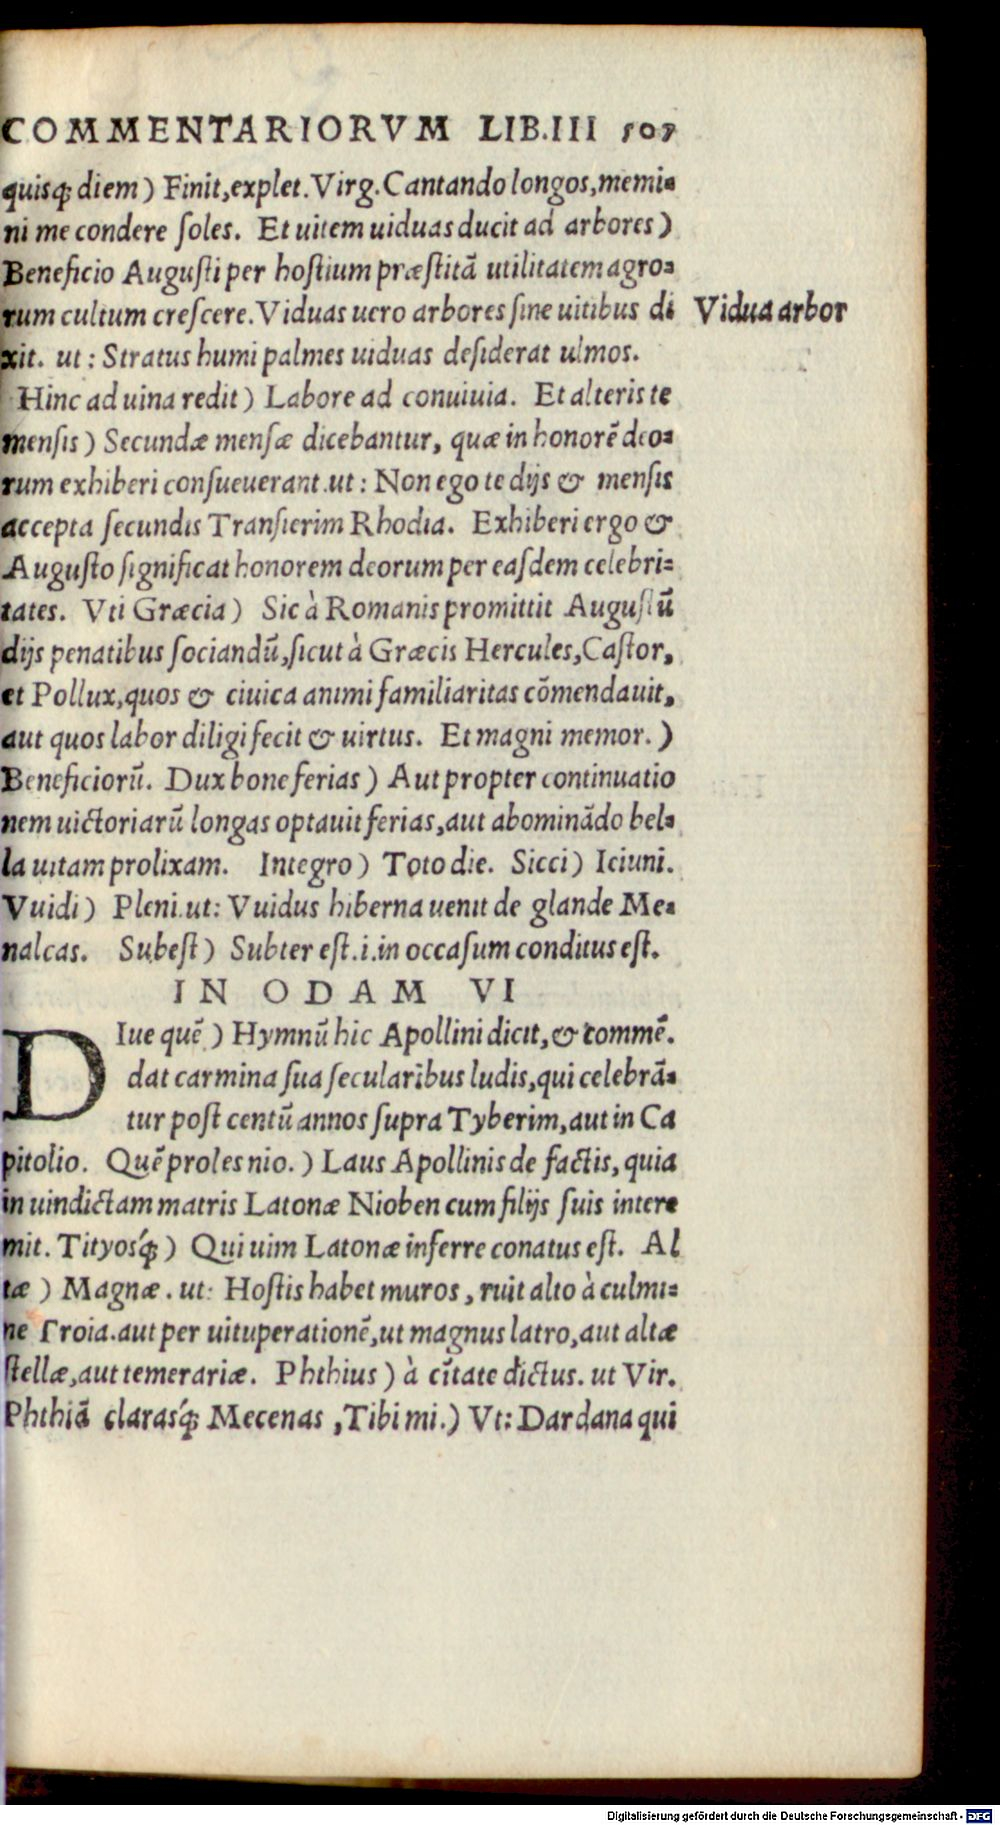 COMMENTARIORVM LIB.III 507
quisq́; diem) Finit, explet. Virg. Cantando longos, memi=
ni me condere ſoles. Et uitem uiduas ducit ad arbores)
Beneficio Auguſti per hoſtium præſtitã utilitatem agro=
rum cultum creſcere. Viduas uero arbores ſine uitibus di
Vidua arbor
xit. ut: Stratus humi palmes uiduas deſiderat ulmos.
Hinc ad uina redit) Labore ad conuiuia. Et alteris te
menſis) Secundæ menſæ dicebantur, quæ in honorẽ deo=
rum exhiberi conſueuerant. ut: Non ego te dijs & menſis
accepta ſecundis Tranſierim Rhodia. Exhiberi ergo &
Auguſto ſignificat honorem deorum per eaſdem celebri=
tates. Vti Græcia) Sic à Romanis promittit Auguſtũ
dijs penatibus ſociandũ, ſicut à Græcis Hercules, Caſtor,
et Pollux, quos & ciuica animi familiaritas cõmendauit,
aut quos labor diligi fecit & uirtus. Et magni memor.)
Beneficiorũ. Dux bone ferias) Aut propter continuatio
nem uictoriarũ longas optauit ferias, aut abominãdo bel=
la uitam prolixam. Integro) Toto die. Sicci) Ieiuni.
Vuidi) Pleni. ut: Vuidus hiberna uenit de glande Me=
nalcas. Subeſt) Subter eſt. i. in occaſum conditus eſt.
IN ODAM VI
DIue quẽ) Hymnũ hic Apollini dicit, & commẽ.
dat carmina ſua ſecularibus ludis, qui celebrã=
tur poſt centũ annos ſupra Tyberim, aut in Ca
pitolio. Quẽ proles nio.) Laus Apollinis de factis, quia
in uindictam matris Latonæ Nioben cum filijs ſuis intere
mit. Tityosq́;) Qui uim Latonæ inferre conatus eſt. Al
tæ) Magnæ. ut: Hoſtis habet muros, ruit alto à culmi=
ne Troia. aut per uituperationẽ, ut magnus latro, aut altæ
ſtellæ, aut temerariæ. Phthius) à cĩtate dictus. ut Vir.
Phthiã clarasq́; Mecenas, Tibi mi.) Vt: Dardana qui
Digitalisierung gefördert durch die Deutsche Forschungsgemeinschaft - DFG